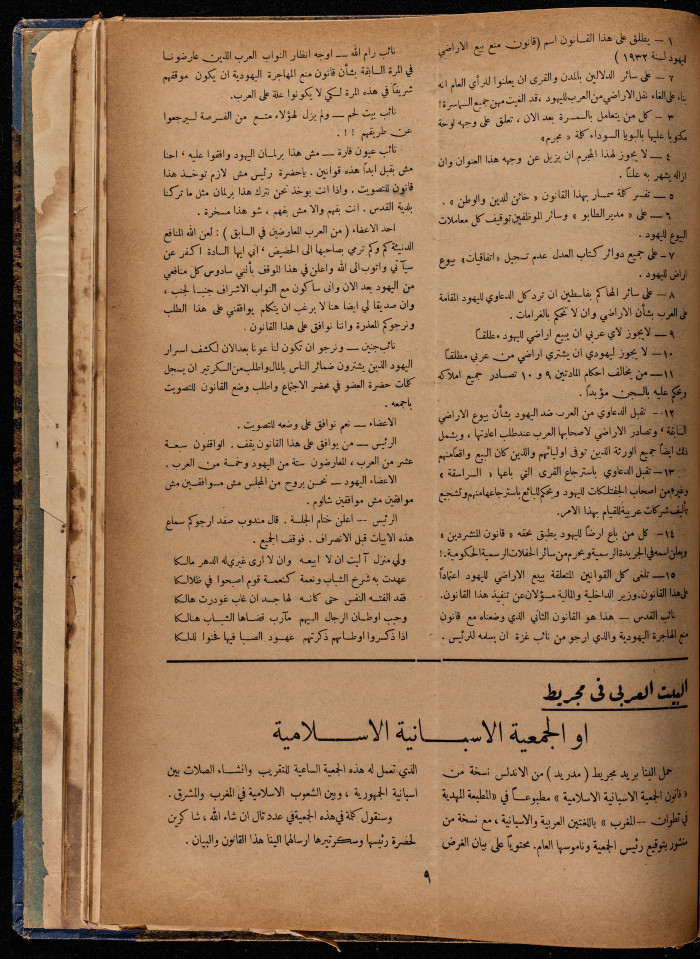 ١ — يطلق على هذا القانون اسم (قانون منع بيع الاراضي
ليهود لسنة ١٩٣٢)
٢ — على سائر الدلالين بالمدن والقرى ان يعلنوا للرأي العام انه
بناء على الغاء نقل الاراضي من العرب لليهود ، قد الغيت مهن جميع السماسرة !
٣ — كل من يتعامل بالسمسرة بعد الان ، تعلق على وجهه لوحة
مكتوبا عليها بالبويا السوداء كلمة «مجرم»
٤ — لا يجوز لهذا المجرم ان يزيل عن وجهه هذا العنوان وان
ازاله يشهر به علناً .
٥ — تفسر كلمة سمسار بهذا القانون « خائن للدين والوطن » .
٦ — على «مدير الطابو » وسائر الموظفين توقيف كل معاملات
البيوع لليهود .
٧ — على جميع دوائر كتاب العدل عدم تسجيل «اتفاقيات» بيوع
اراض لليهود .
٨ — على سائر المحاكم بفلسطين ان ترد كل الدعاوي لليهود المقامة
على العرب بشأن الاراضي وان لا تحكم بالغرامات .
٩ — لايجوز لاي عربي ان يبيع اراضي لليهود مطلقاً
١٠ — لا يجوز ليهودي ان يشتري اراضي من عربي مطلقاً
١١ — من يخالف احكام المادتين ٩ و ١٠ تصادر جميع املاكه
ويحكم عليه بالسجن مؤبداً .
١٢ — تقبل الدعاوي من العرب ضد اليهود بشأن بيوع الاراضي
السابقة ، وتصادر الاراضي لاصحابها العرب عند طلب اعادتها ، ويشمل
ذلك ايضاً جميع الورثة الذين توفى اوليائهم والذين كان البيع واقعاً منهم
١٣ — تقبل الدعاوي باسترجاع القرى التي باعها « السراسقة »
وغيرهم من اصحاب الجفتلكات لليهود ويحكم للبائع باسترجاعها منهم وتشجيع
تأليف شركات عربية للقيام بهذا الامر .
١٤ — كل من باع ارضاً لليهود يطبق بحقه « قانون المتشردين »
ويعلن اسمه في الجريدة الرسمية ويحرم من سائر الحفلات الرسمية الحكومية . !
١٥ — تلغى كل القوانين المتعلقة ببيع الاراضي لليهود اعتماداً
على هذا القانون . وزير الداخلية والمالية مسؤلان عن تنفيذ هذا القانون .
نائب القدس — هذا هو القانون الثاني الذي وضعناه مع قانون
منع المهاجرة اليهودية والذي ارجو من نائب غزة ان يسلمه للرئيس .
نائب رام الله — اوجه انظار النواب العرب الذين عارضونا
في المرة السابقة بشأن قانون منع المهاجرة اليهودية ان يكون موقفهم
شريفاً في هذه المرة لكي لا يكونوا علة على العرب .
نائب بيت لحم — ولم يزل لهؤلاء متسع من الفرصة ليرجعوا
عن طريقهم ! ! .
نائب عيون قارة — مش هذا برلمان اليهود وافقوا عليه ، احنا
مش بنقبل ابدأ هذه قوانين . ياحضرة رئيس مش لازم توخذ هذا
قانون للتصويت . واذا انت يوخذ نحن نترك هذا برلمان مثل ما تركنا
بلدية القدس . انت بفهم والا مش بفهم ، شو هذا مسخرة .
احد الاعضاء ( من العرب المعارضين في السابق ) : لعن الله المنافع
الدنيئة كم وكم ترمي بصاحبها الى الحضيض ، اني ايها السادة اكفر عن
سيآتي واتوب الى الله واعلن في هذا الموقف بأنني سادوس كل منافعي
من اليهود بعد الان واني ساكون مع النواب الاشراف جنباً لجنب ،
وان صديقا لي ايضا هنا لا يرغب ان يتكلم يوافقني على هذا الطلب
ونرجوكم المعذرة واننا نوافق على هذا القانون .
نائب جنين — ونرجو ان تكون لنا عونا بعد الان لكشف اسرار
اليهود الذين يشترون ضمائر الناس بالمال واطلب من السكرتير ان يسجل
كلمات حضرة العضو في محضر الاجتماع واطلب وضع القانون للتصويت
باجمعه .
الاعضاء — نعم نوافق على وضعه للتصويت .
الرئيس — من يوافق على هذا القانون يقف . الواقفون سبعة
عشر من العرب ، المعارضون ستة من اليهود وخمسة من العرب .
الاعضاء اليهود — نحن بروح من المجلس مش موافقين مش
موافقين مش موافقين شالوم .
الرئيس — اعلن ختام الجلسة . قال مندوب صفد ارجوكم سماع
هذه الابيات قبل الانصراف . فوقف الجميع .
ولي منزل آليت ان لا ابيعه وان لا ارى غيري له الدهر مالكا
عهدت به شرخ الشباب ونعمة كنعمة قوم اصبحوا في ظلالكا
فقد الفته النفس حتى كانه لها جسد ان غاب غودرت هالكا
وحبب اوطان الرجال اليهم مآرب قضاها الشباب هنالكا
اذا ذكروا اوطانهم ذكرتهم عهود الصبا فيها فحنوا لذلكا
البيت العربي في مجريط
او الجمعية الاسبانية الاسلامية
حمل الينا بريد مجريط ( مدريد ) من الاندلس نسخة من
« قانون الجمعية الاسبانية الاسلامية » مطبوعاً في « المطبعة المهدية
في تطوان — المغرب » باللغتين العربية والاسبانية ، مع نسخة من
منشور بتوقيع رئيس الجمعية وناموسها العام . محتوياً على بيان الغرض
الذي تعمل له هذه الجمعية الساعية للتقريب وانشاء الصلات بين
اسبانية الجمهورية ، وبين الشعوب الاسلامية في المغرب والمشرق .
وسنقول كلمة في هذه الجمعية في عدد تال ان شاء الله ، شاكرين
لحضرة رئيسها وسكرتيرها ارسالهما الينا هذا القانون والبيان .
٩